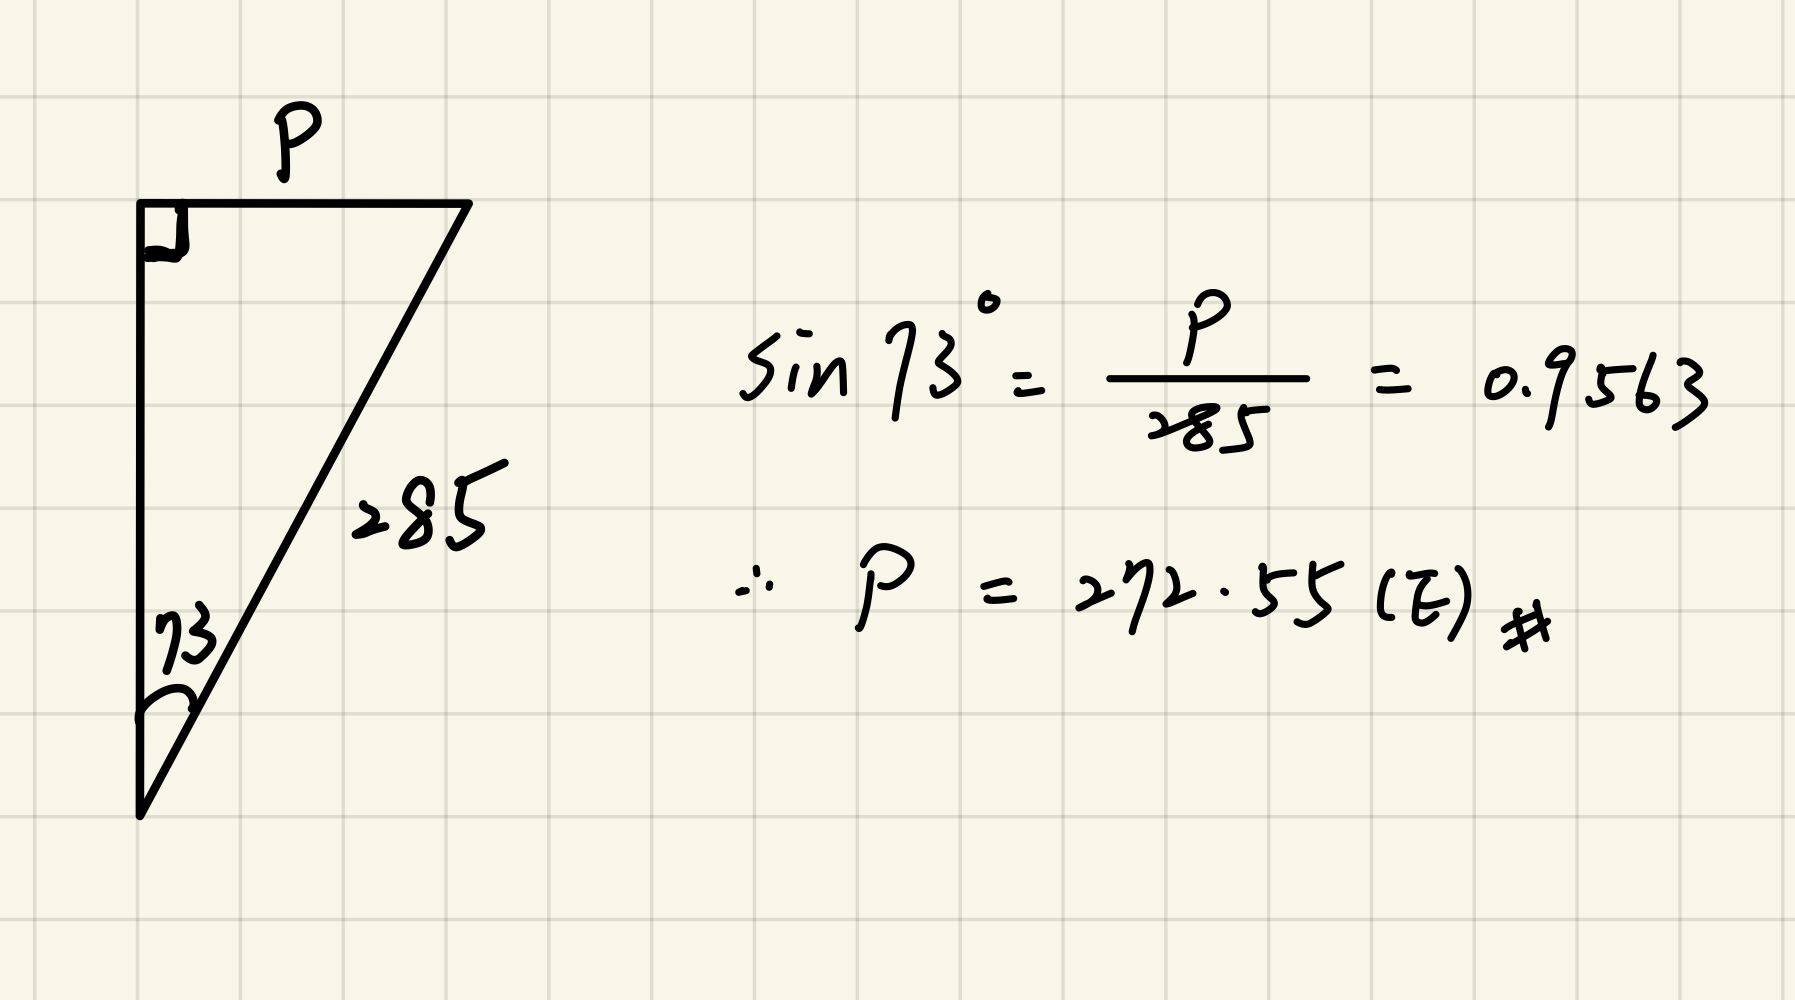 P
285
73
sin 73° = P/285 = 0.9563
∴ P = 272.55 (E) #